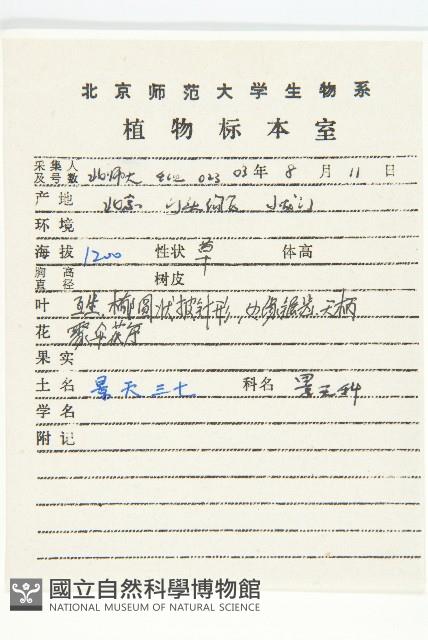 北京师范大学生物系
植物标本室
采集人及号数 北师大 023 03年 8 月 11 日
产地 北京
环境
海拔 1200 性状 草 体高
胸高直径 树皮
叶 互生, 椭圆状披针形, 边缘锯齿, 无柄
花 聚伞花序
果实
土名 景天三七 科名 景天科
学名
附记
國立自然科學博物館
NATIONAL MUSEUM OF NATURAL SCIENCE